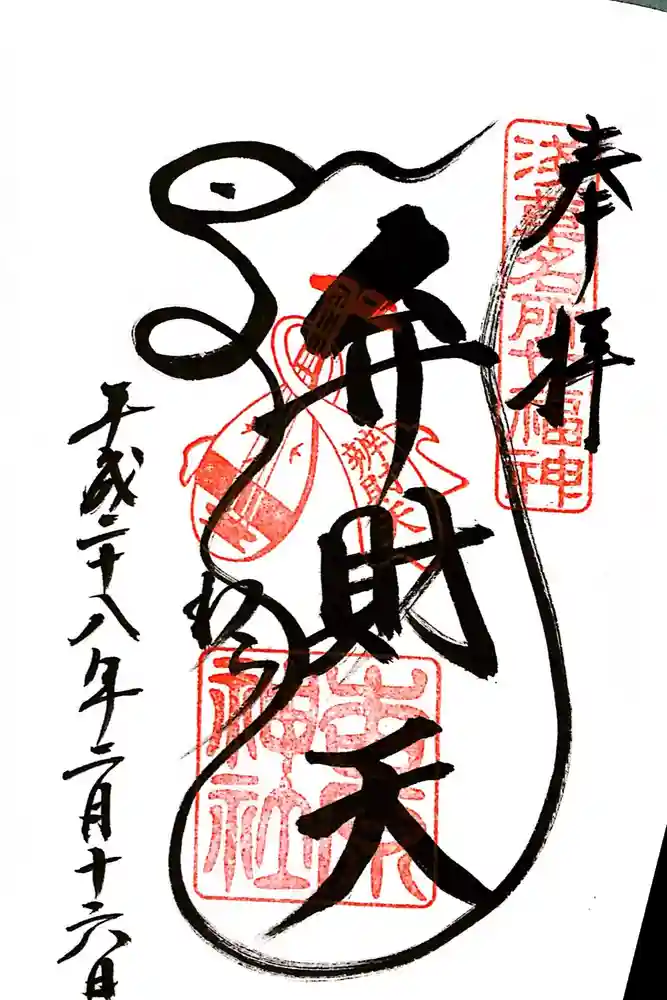 奉拝
浅草名所七福神
弁財天
辨財天
吉原
神社
平成二十八年二月十六日